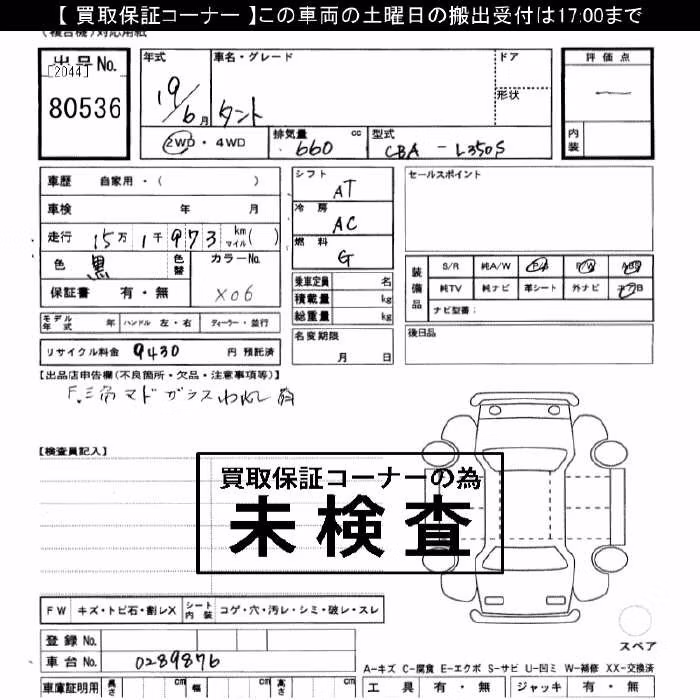 【 買取保証コーナー 】この車両の土曜日の搬出受付は17:00まで
(複合機)対応用紙
出品No.
[2044]
80536
年式
19/6月
車名・グレード
タント
ドア
形状
評価点
ー
内装
2WD・4WD
排気量 660 cc
型式 CBA - L350S
車歴 自家用・( )
車検 年 月
走行 15万1千973 km マイル( )
色 黒 色替
カラーNo. X06
保証書 有・無
シフト AT
冷房 AC
燃料 G
乗車定員 名
積載量 kg
総重量 kg
セールスポイント
装備品
S/R 純A/W P/S P/W ABS
純TV 純ナビ 革シート 外ナビ エアB
ナビ型番:
モデル年式 年 ハンドル 左・右 ディーラー・並行
名変期限 月 日
後日品
リサイクル料金 9430 円 預託済
【出品店申告欄(不良箇所・欠品・注意事項等)】
F.三角マドガラスわれし有
【検査員記入】
買取保証コーナーの為
未検査
FW キズ・トビ石・割レX シート内装 コゲ・穴・汚レ・シミ・破レ・スレ
登録No.
車台No. 0289876
スペア
A-キズ C-腐食 E-エクボ S-サビ U-凹ミ W-補修 XX-交換済
車庫証明用 長さ cm 幅 cm 高さ cm
工具 有・無 ジャッキ 有・無